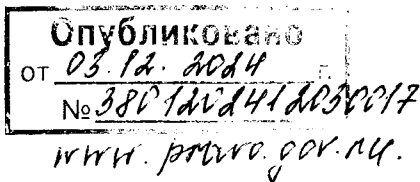 Опубликовано
от 03.12.2024 г.
№ 3801202412030017
www. pravo. gov. ru.